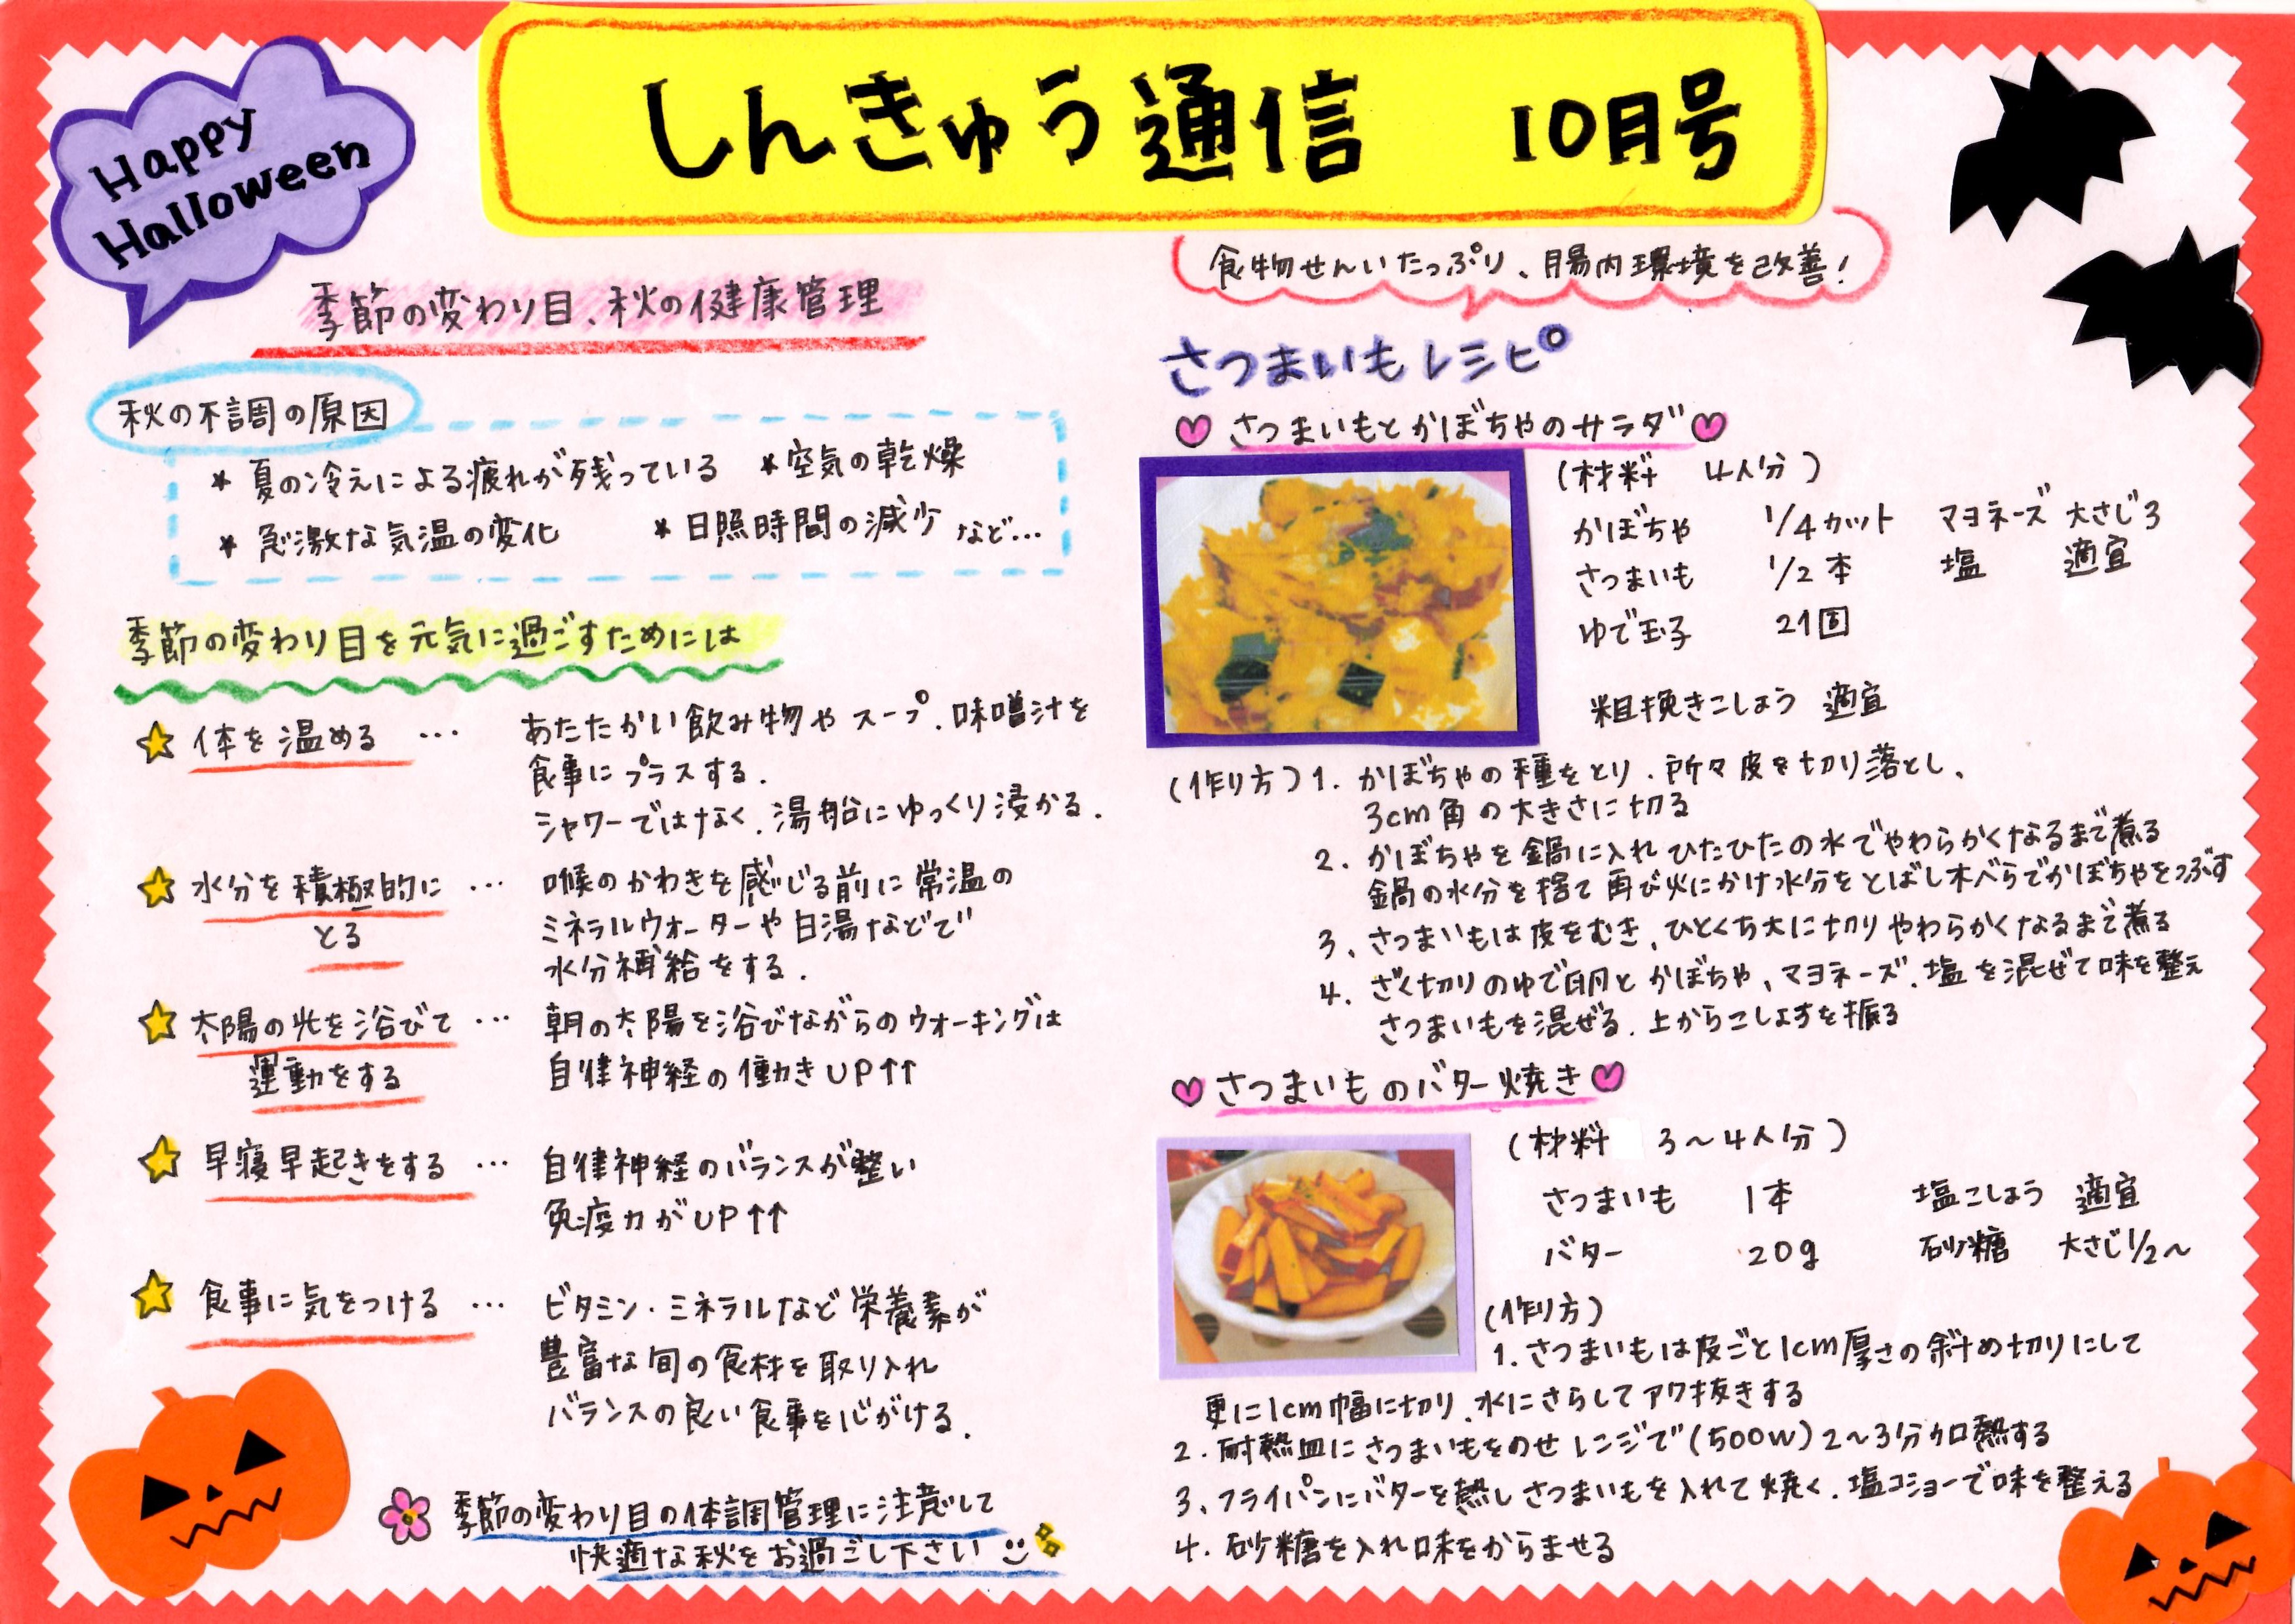 Happy
Halloween
しんきゅう通信　10月号
季節の変わり目、秋の健康管理
秋の不調の原因
* 夏の冷えによる疲れが残っている　* 空気の乾燥
* 急激な気温の変化　* 日照時間の減少 など…
季節の変わり目を元気に過ごすためには
☆ 体を温める … あたたかい飲み物やスープ、味噌汁を
食事にプラスする.
シャワーではなく、湯船にゆっくり浸かる.
☆ 水分を積極的に … 喉のかわきを感じる前に常温の
とる　ミネラルウォーターや白湯などで
水分補給をする.
☆ 太陽の光を浴びて … 朝の太陽を浴びながらのウオーキングは
運動をする　自律神経の働きUP↑↑
☆ 早寝早起きをする … 自律神経のバランスが整い
免疫力がUP↑↑
☆ 食事に気をつける … ビタミン・ミネラルなど栄養素が
豊富な旬の食材を取り入れ
バランスの良い食事を心がける.
季節の変わり目の体調管理に注意して
快適な秋をお過ごし下さい
食物せんいたっぷり、腸内環境を改善!
さつまいもレシピ
♡ さつまいもとかぼちゃのサラダ ♡
(材料　4人分)
かぼちゃ　1/4カット　マヨネーズ 大さじ3
さつまいも　1/2本　塩　適宜
ゆで玉子　2個
粗挽きこしょう 適宜
(作り方) 1. かぼちゃの種をとり、所々皮を切り落とし、
3cm角の大きさに切る
2. かぼちゃを鍋に入れひたひたの水でやわらかくなるまで煮る
鍋の水分を捨て再び火にかけ水分をとばし木べらでかぼちゃをつぶす
3、さつまいもは皮をむき、ひとくち大に切りやわらかくなるまで煮る
4. ざく切りのゆで卵とかぼちゃ、マヨネーズ、塩を混ぜて味を整え
さつまいもを混ぜる. 上からこしょうを振る
♡ さつまいものバター焼き ♡
(材料　3～4人分)
さつまいも　1本　塩こしょう　適宜
バター　20g　砂糖　大さじ1/2～
(作り方)
1. さつまいもは皮ごと1cm厚さの斜め切りにして
更に1cm幅に切り、水にさらしてアク抜きする
2. 耐熱皿にさつまいもをのせレンジで(500W)2～3分加熱する
3、フライパンにバターを熱しさつまいもを入れて焼く. 塩コショーで味を整える
4. 砂糖を入れ味をからませる